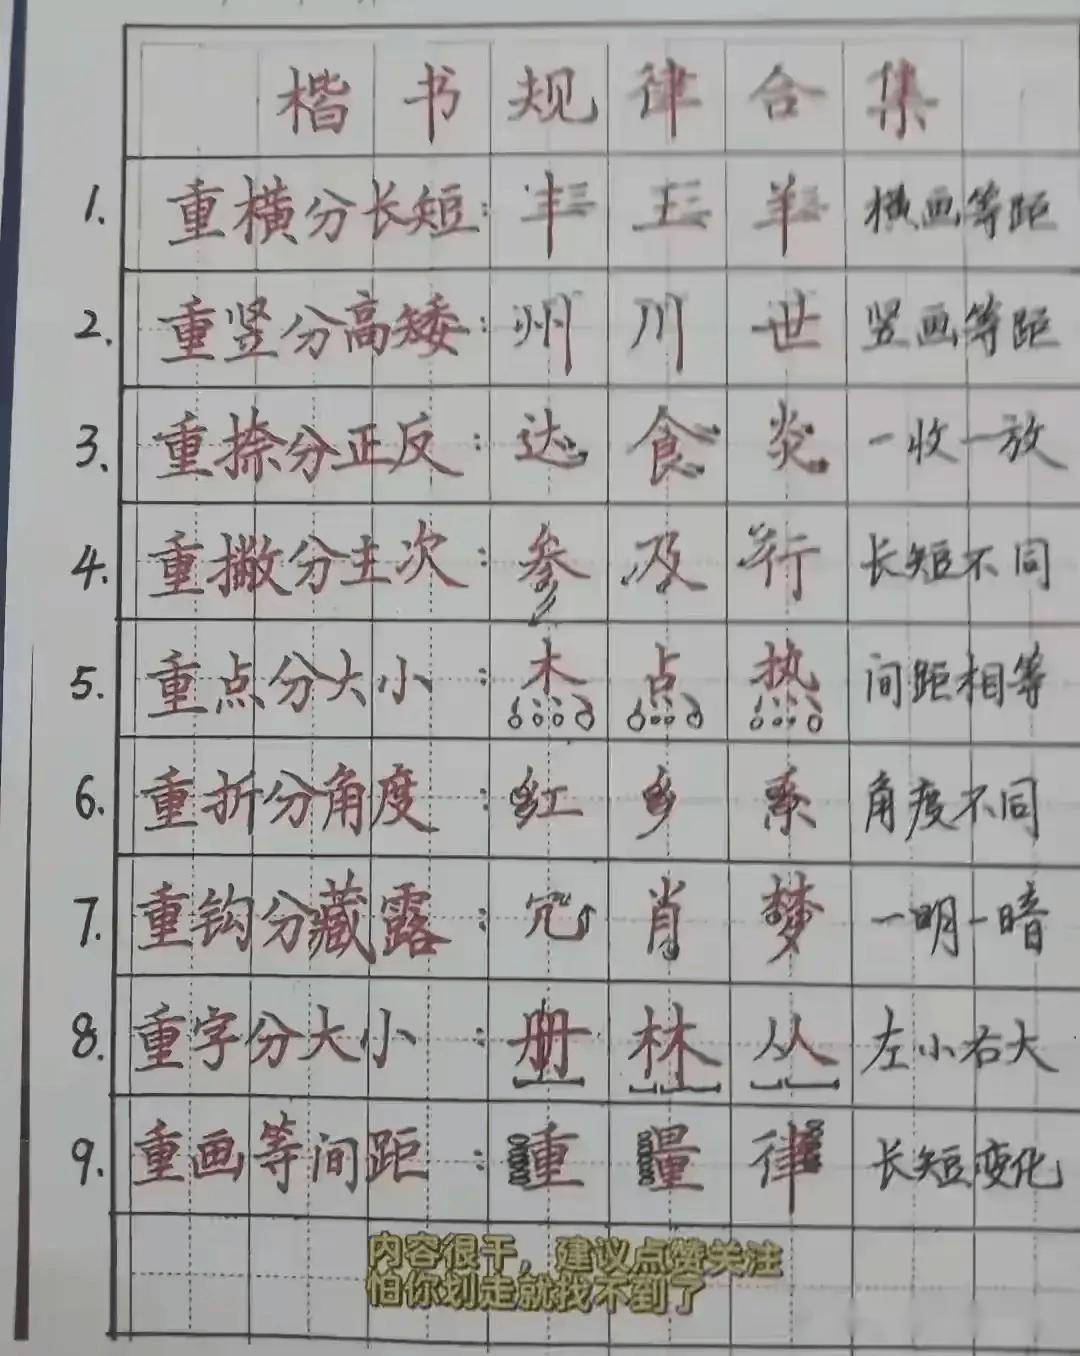 楷书规律合集
1. 重横分长短：丰 王 羊 横画等距
2. 重竖分高矮：州 川 世 竖画等距
3. 重捺分正反：达 食 炎 一收一放
4. 重撇分主次：参 及 行 长短不同
5. 重点分大小：杰 点 热 间距相等
6. 重折分角度：红 乡 系 角度不同
7. 重钩分藏露：冗 肖 梦 一明一暗
8. 重字分大小：册 林 丛 左小右大
9. 重画等间距：重 量 律 长短变化
内容很干，建议点赞关注
怕你划走就找不到了